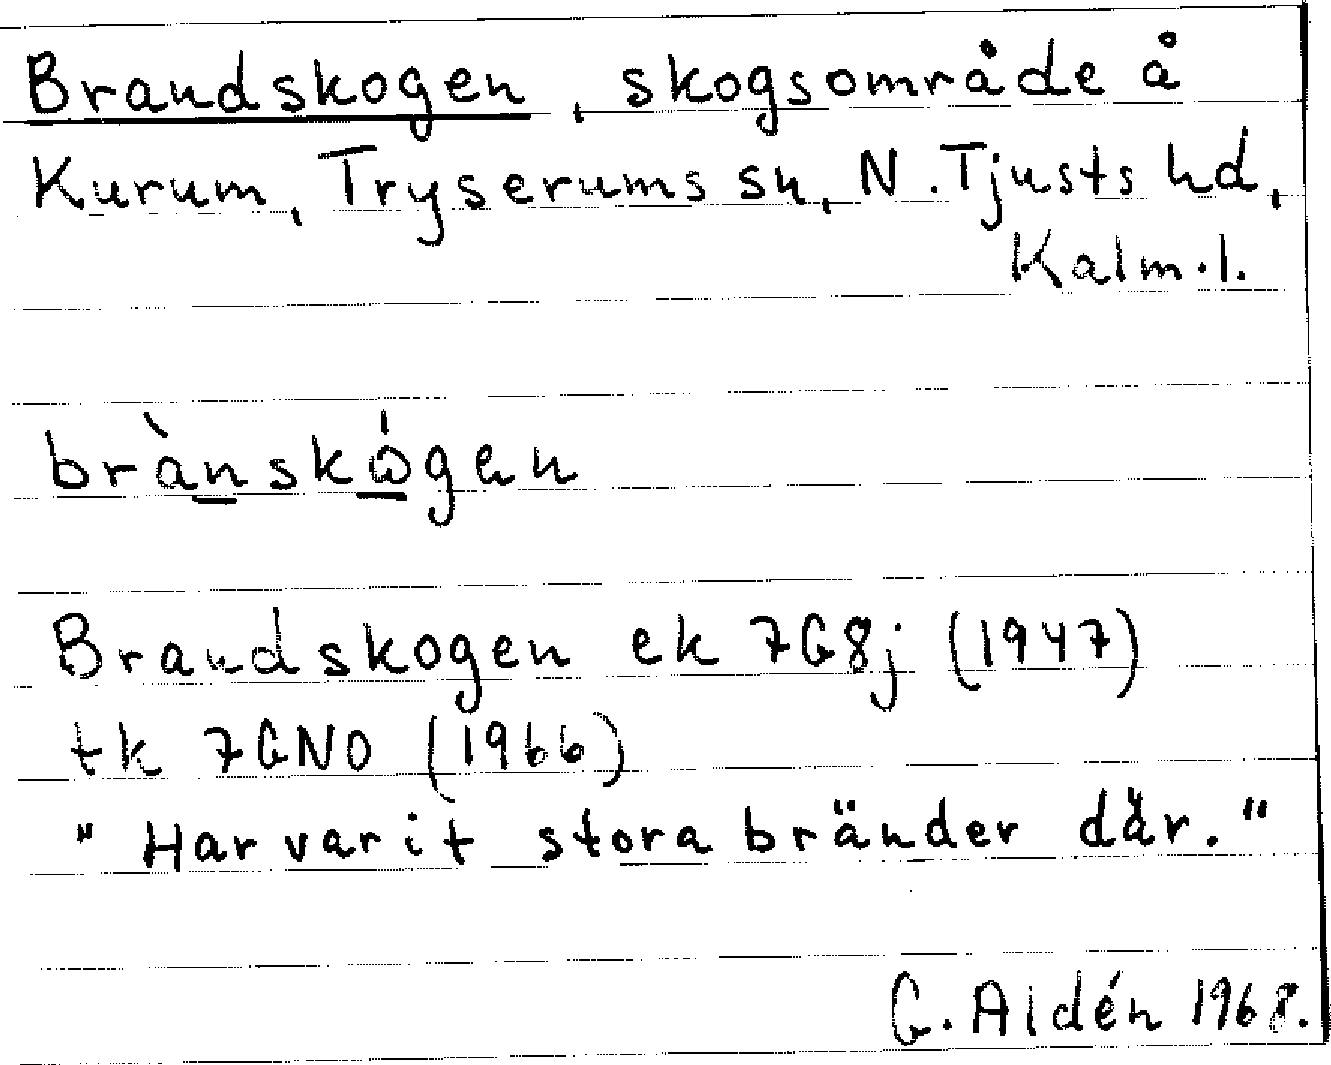 Brandskogen, skogsområde å
Kurum, Tryserums sn, N. Tjusts hd,
Kalm.l.
brànskɷ́gen
Brandskogen ek 7G8j (1947)
tk 7GNO (1966)
"Har varit stora bränder där."
G. Aldén 1968.